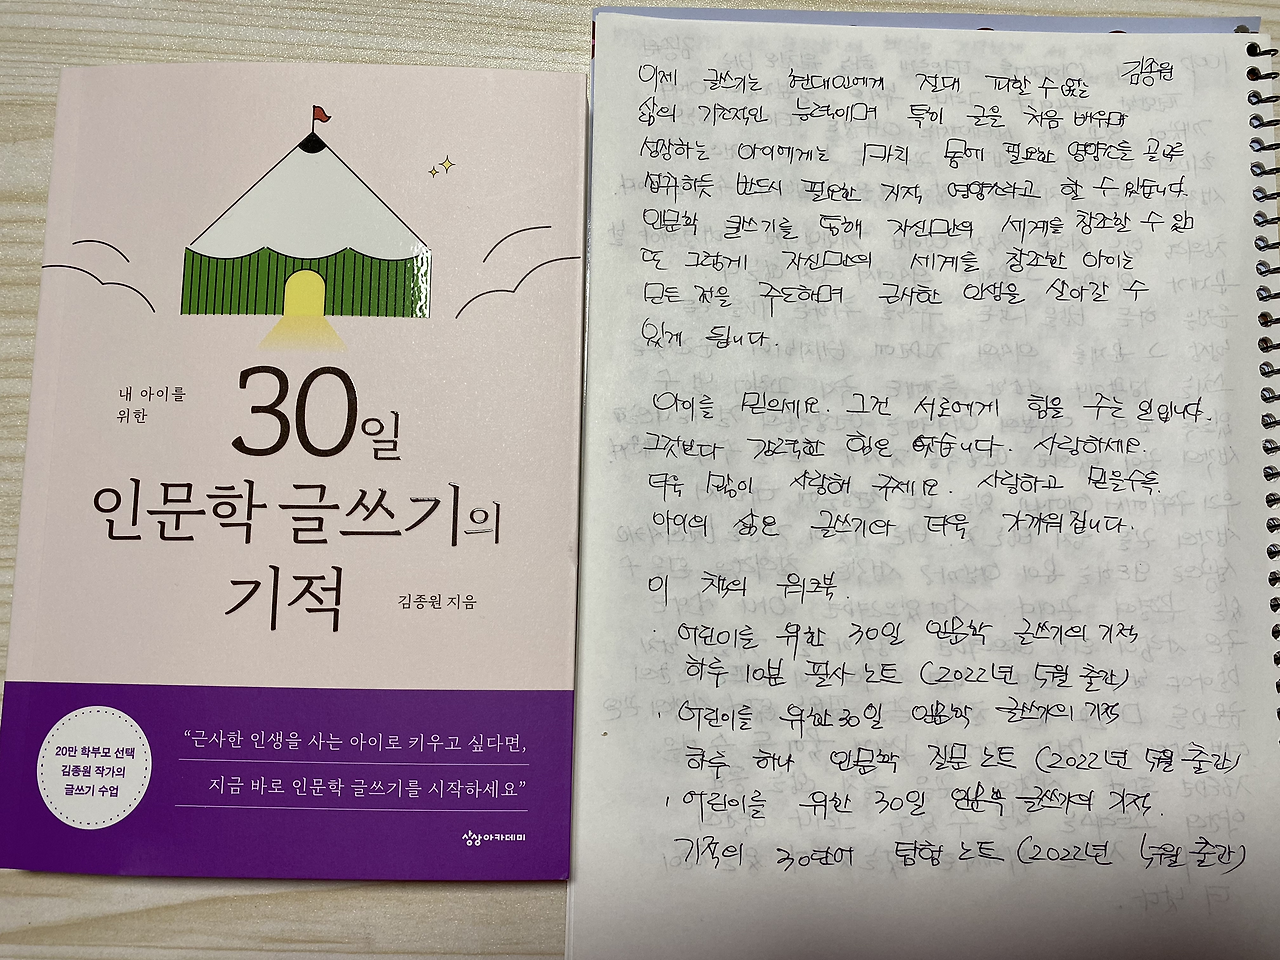 내 아이를
위한
30일
인문학 글쓰기의
기적
김종원 지음
20만 학부모 선택
김종원 작가의
글쓰기 수업
“근사한 인생을 사는 아이로 키우고 싶다면,
지금 바로 인문학 글쓰기를 시작하세요”
상상아카데미
김종원
이제 글쓰기는 현대인에게 절대 피할 수 없는
삶의 기초적인 능력이며 특히 글을 처음 배워
성장하는 아이에게는 마치 몸에 필요한 영양소를 골고루
섭취하듯 반드시 필요한 지적 영양소라고 할 수 있습니다.
인문학 글쓰기를 통해 자신만의 세계를 창조할 수 있고
또 그렇게 자신만의 세계를 창조한 아이는
모든 것을 주도하며 근사한 인생을 살아갈 수
있게 됩니다.
아이를 믿으세요. 그건 서로에게 힘을 주는 일입니다.
그것보다 강력한 힘은 없습니다. 사랑하세요.
더욱 많이 사랑해 주세요. 사랑하고 믿을수록.
아이의 삶은 글쓰기와 더욱 가까워집니다.
이 책의 워크북.
· 어린이를 위한 30일 인문학 글쓰기의 기적
하루 10분 필사 노트 (2022년 5월 출간)
· 어린이를 위한 30일 인문학 글쓰기의 기적
하루 하나 인문학 질문 노트 (2022년 5월 출간)
· 어린이를 위한 30일 인문학 글쓰기의 기적.
기적의 30단어 탐험 노트 (2022년 5월 출간)